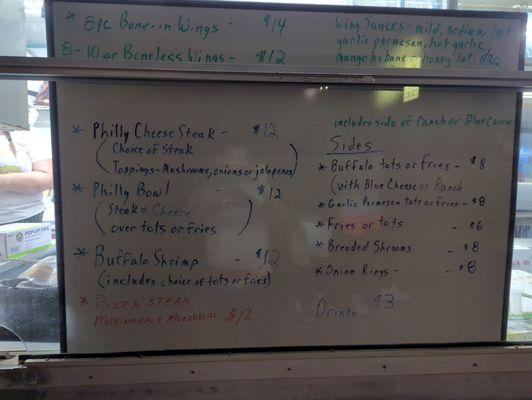 * 8pc Bone-in Wings - $14
8-10pc Boneless Wings - $12
Wing Sauces - mild, medium, hot
garlic parmesan, hot garlic,
mango habanero, honey hot, BBQ
includes side of ranch or Blue Cheese
* Philly Cheese Steak - $12
(Choice of Steak
Toppings - Mushrooms, onions or jalapenos)
* Philly Bowl - $12
(Steak & Cheese
over tots or fries)
* Buffalo Shrimp - $12
(includes choice of tots or fries)
* Pizza Steak
Marinara + Mozzarella $12
Sides
* Buffalo tots or fries - $8
(with Blue Cheese or Ranch
* Garlic Parmesan tots or fries - $8
* Fries or tots - $6
* Breaded Shrooms - $8
* Onion Rings - $8
Drinks $3
POP-UP